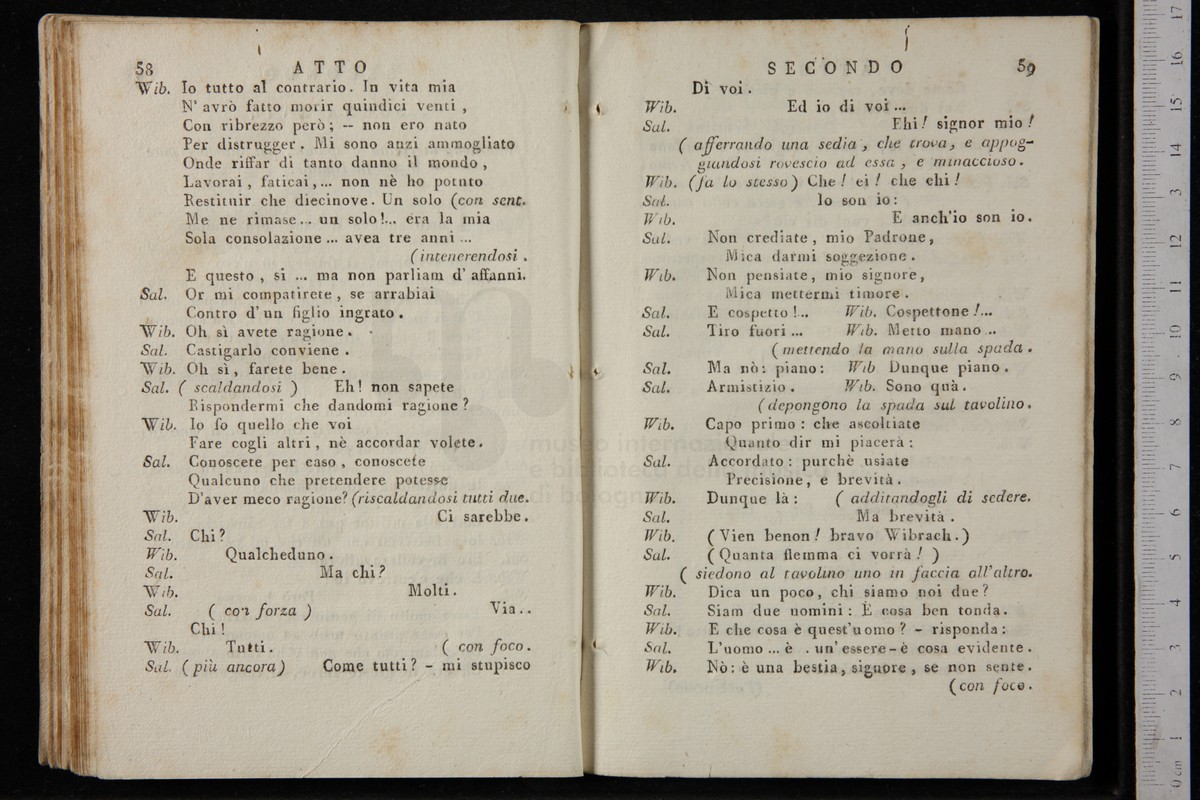 58 ATTO
Wib. Io tutto al contrario. In vita mia
N' avrò fatto morir quindici venti ,
Con ribrezzo però ; -- non ero nato
Per distrugger . Mi sono anzi ammogliato
Onde riffar di tanto danno il mondo ,
Lavorai , faticai , ... non nè ho potuto
Restituir che diecinove . Un solo (con sent.
Me ne rimase ... un solo !... era la mia
Sola consolazione ... avea tre anni ...
( intenerendosi .
E questo , sì ... ma non parliam d' affanni.
Sal. Or mi compatirete , se arrabiai
Contro d' un figlio ingrato .
Wib. Oh sì avete ragione .
Sal. Castigarlo conviene .
Wib. Oh sì , farete bene .
Sal. ( scaldandosi ) Eh ! non sapete
Rispondermi che dandomi ragione ?
Wib. Io fo quello che voi
Fare cogli altri , nè accordar volete .
Sal. Conoscete per caso , conoscete
Qualcuno che pretendere potesse
D'aver meco ragione? (riscaldandosi tutti due.
Wib. Ci sarebbe .
Sal. Chi ?
Wib. Qualcheduno .
Sal. Ma chi ?
Wib. Molti .
Sal. ( con forza ) Via ..
Chi !
Wib. Tutti . ( con foco .
Sal. ( più ancora ) Come tutti ? - mi stupisco
SECONDO 59
Di voi .
Wib. Ed io di voi ...
Sal. Ehi ! signor mio !
( afferrando una sedia , che trova , e appog-
giandosi rovescio ad essa , e minaccioso .
Wib. (fa lo stesso) Che ! ei ! che ehi !
Sal. Io son io :
Wib. E anch'io son io .
Sal. Non crediate , mio Padrone ,
Mica darmi soggezione .
Wib. Non pensiate , mio signore ,
Mica mettermi timore .
Sal. E cospetto !... Wib. Cospettone !...
Sal. Tiro fuori ... Wib. Metto mano ..
( mettendo la mano sulla spada .
Sal. Ma nò : piano : Wib Dunque piano .
Sal. Armistizio . Wib. Sono quà .
( depongono la spada sul tavolino .
Wib. Capo primo : che ascoltiate
Quanto dir mi piacerà :
Sal. Accordato : purchè usiate
Precisione , e brevità .
Wib. Dunque là : ( additandogli di sedere.
Sal. Ma brevità .
Wib. ( Vien benon ! bravo Wibrach . )
Sal. ( Quanta flemma ci vorrà ! )
( siedono al tavolino uno in faccia all'altro.
Wib. Dica un poco , chi siamo noi due ?
Sal. Siam due uomini : È cosa ben tonda .
Wib. E che cosa è quest'uomo ? - risponda :
Sal. L'uomo ... è . un' essere - è cosa evidente .
Wib. Nò : è una bestia , signore , se non sente .
( con foco .